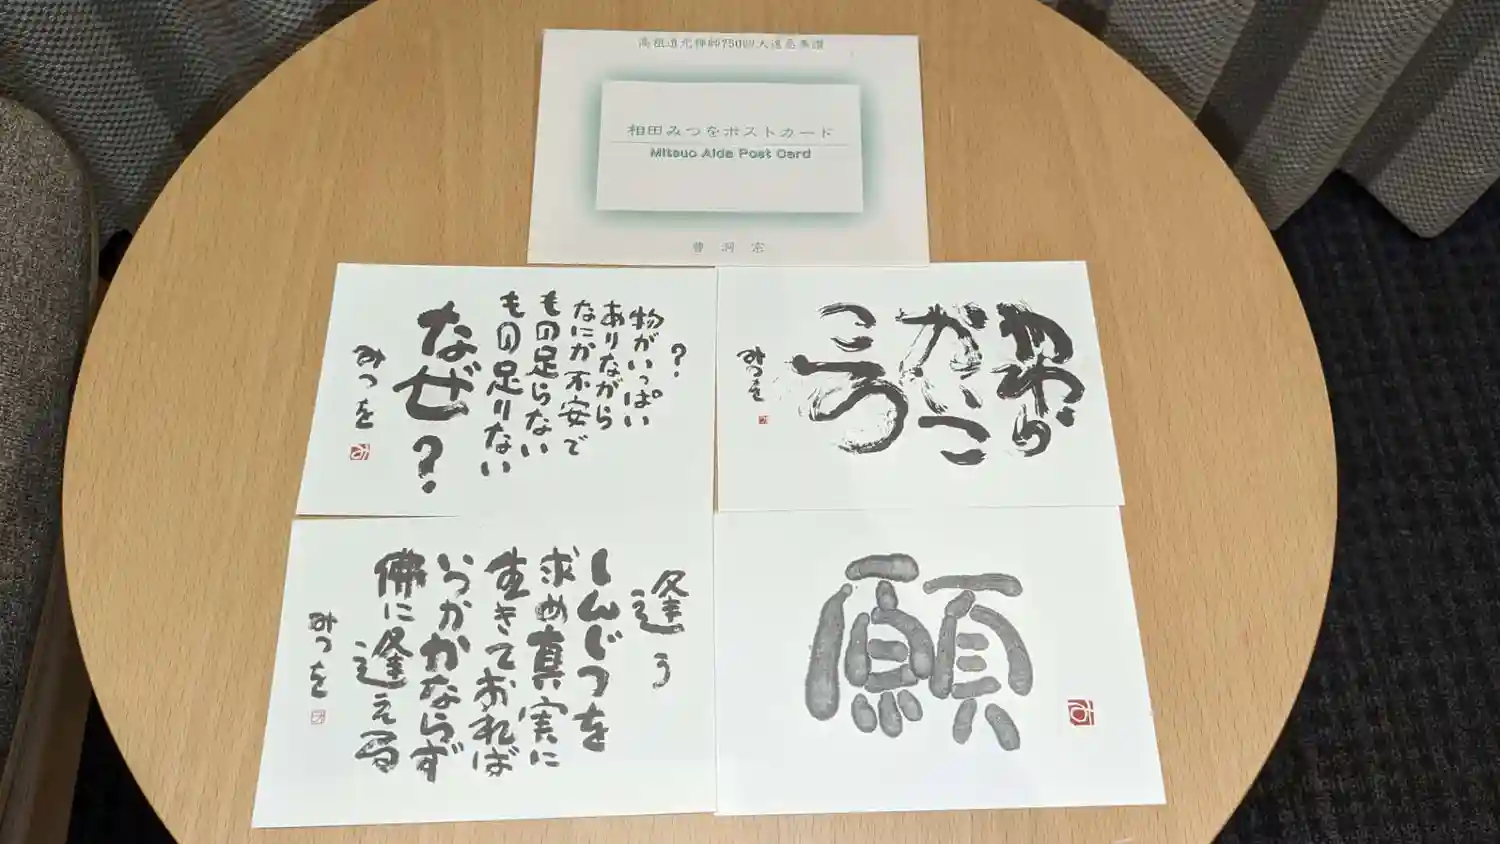 高祖道元禅師750回大遠忌奉讃
相田みつをポストカード
Mitsuo Aida Post Card
曹洞宗
?
物がいっぱい
ありながら
なにか不安で
もの足らない
もの足りない
なぜ?
みつを
み
やわら
かいこ
ころ
みつを
み
逢う
しんじつを
求め真実に
生きておれば
いつかかならず
佛に逢える
みつを
み
願
み